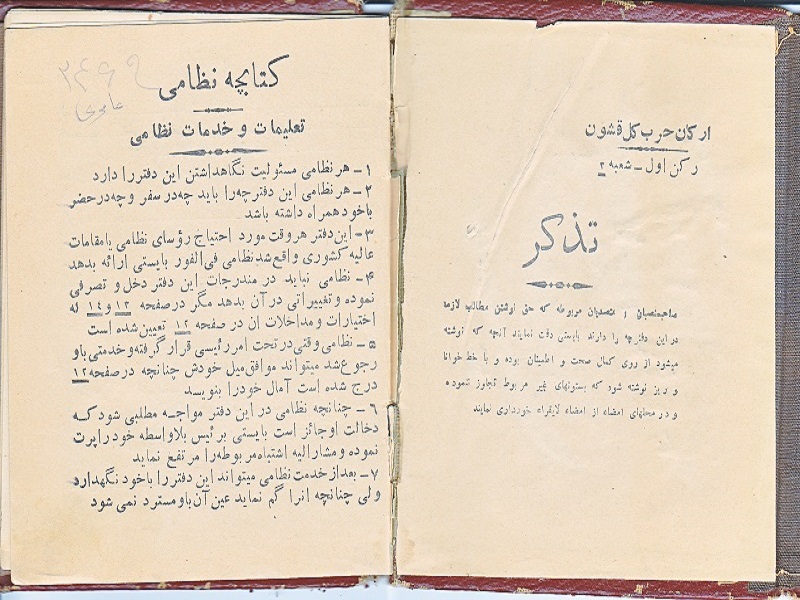 ارکان حرب کل قشون
رکن اول ــ شعبه ۲
تذکر
صاحبمنصبان و متصدیان مربوطه که حق نوشتن مطالب لازمه
در این دفترچه را دارند بایستی دقت نمایند آنچه که نوشته
میشود از روی کمال صحت و اطمینان بوده و با خط خوانا
و ریز نوشته شود که بستونهای غیر مربوط تجاوز ننموده
و در محلهای امضاء از امضاء لایقراء خودداری نمایند
کتابچه نظامی
تعلیمات و خدمات نظامی
۱ ــ هر نظامی مسئولیت نگاهداشتن این دفتر را دارد
۲ ــ هر نظامی این دفترچه را باید چه در سفر و چه در حضر
با خود همراه داشته باشد
۳ ــ این دفتر هر وقت مورد احتیاج رؤسای نظامی یا مقامات
عالیه کشوری واقع شد نظامی فی الفور بایستی ارائه بدهد
۴ ــ نظامی نباید در مندرجات این دفتر دخل و تصرفی
نموده و تغییراتی در آن بدهد مگر در صفحه ۱۲ و ۱٤ که
اختیارات و مداخلات ان در صفحه ۱۲ تعیین شده است
۵ ــ نظامی وقتی در تحت امر رئیسی قرار گرفته و خدمتی باو
رجوع شد میتواند موافق میل خودش چنانچه در صفحه ۱۲
درج شده است آمال خود را بنویسد
٦ ــ چنانچه نظامی در این دفتر مواجه مطلبی شود که
دخالت او جائز است بایستی برئیس بلاواسطه خود راپرت
نموده و مشارالیه اشتباه مربوطه را مرتفع نماید
۷ ــ بعد از خدمت نظامی میتواند این دفتر را با خود نگهدارد
ولی چنانچه انرا گم نماید عین آن باو مسترد نمی شود